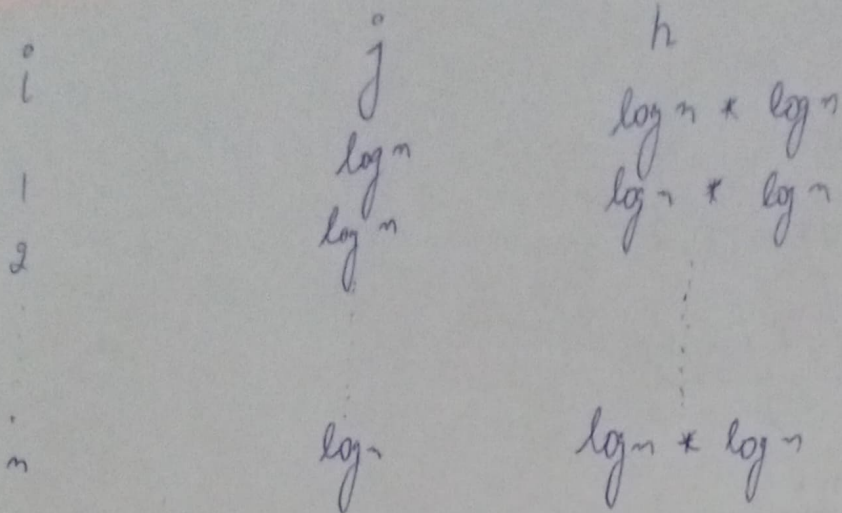 i j h
1 log n log n * log n
2 log n log n * log n
n log n log n * log n